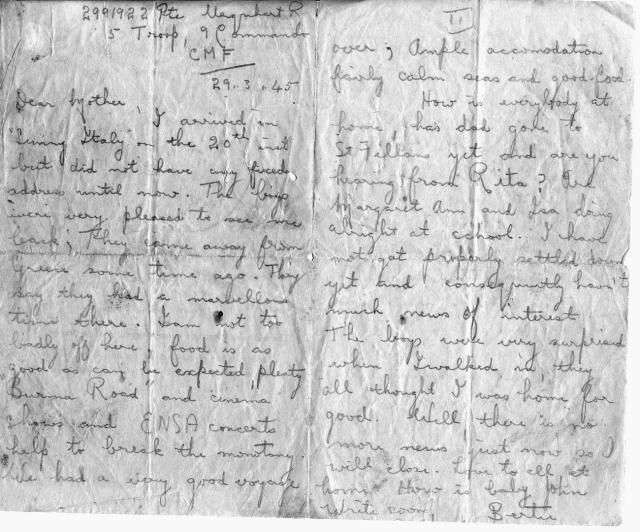 2991922 Pte Urquhart R
5 Troop, 9 Commando
CMF
29.3.45
Dear Mother,
I arrived in
"Sunny Italy" on the 20th inst
but did not have any fixed
address until now. The boys
were very pleased to see me
back; They came away from
Greece some time ago. They
say they had a marvellous
time there. I am not too
badly off here, food is as
good as can be expected, plenty
"Burma Road" and cinema
shows and ENSA concerts
help to break the monotony.
We had a very good voyage
II
over; Ample accomodation
fairly calm seas and good food.
How is everybody at
home, has dad gone to
St Fillans yet and are you
hearing from Rita? Are
Margaret Ann and Isa doing
alright at school. I have
not got properly settled down
yet and consequently haven't
much news of interest
The boys were very surprised
when I walked in, they
all thought I was home for
good. Well there is no
more news just now so I
will close. Love to all at
home. How is baby John
write soon Bertie